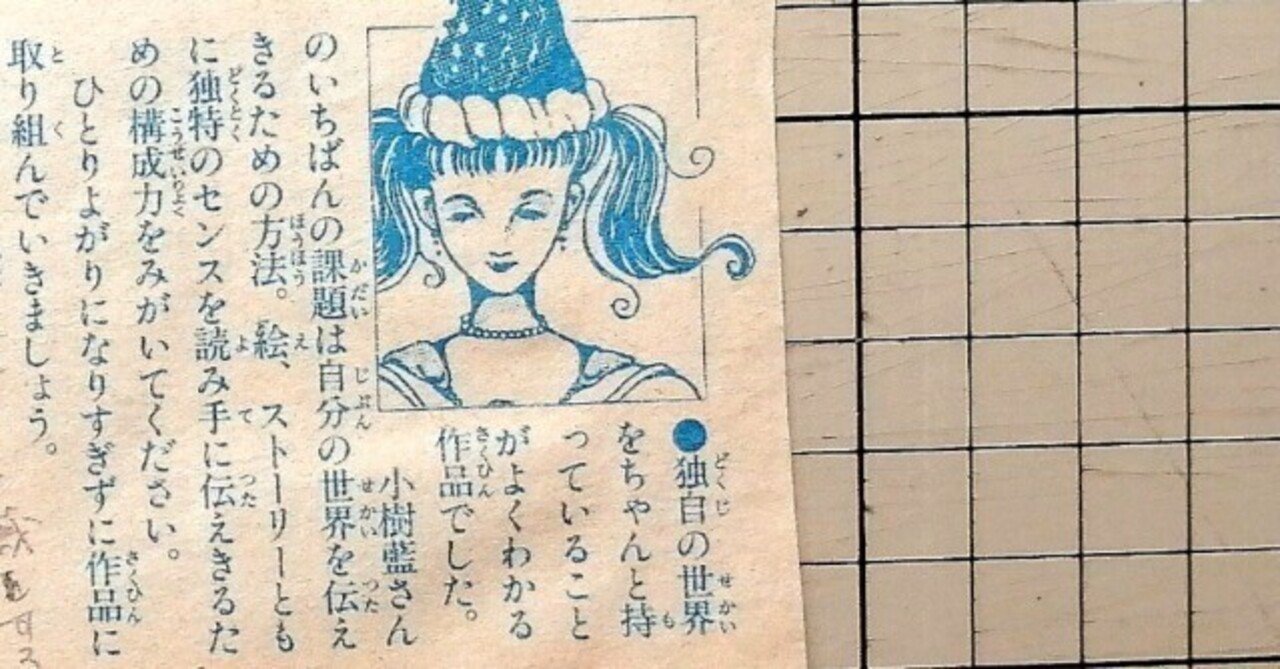 ●独自の世界
をちゃんと持
っていること
がよくわかる
作品でした。
小樹藍さん
のいちばんの課題は自分の世界を伝え
きるための方法。絵、ストーリーとも
に独特のセンスを読み手に伝えきるた
めの構成力をみがいてください。
ひとりよがりになりすぎずに作品に
取り組んでいきましょう。